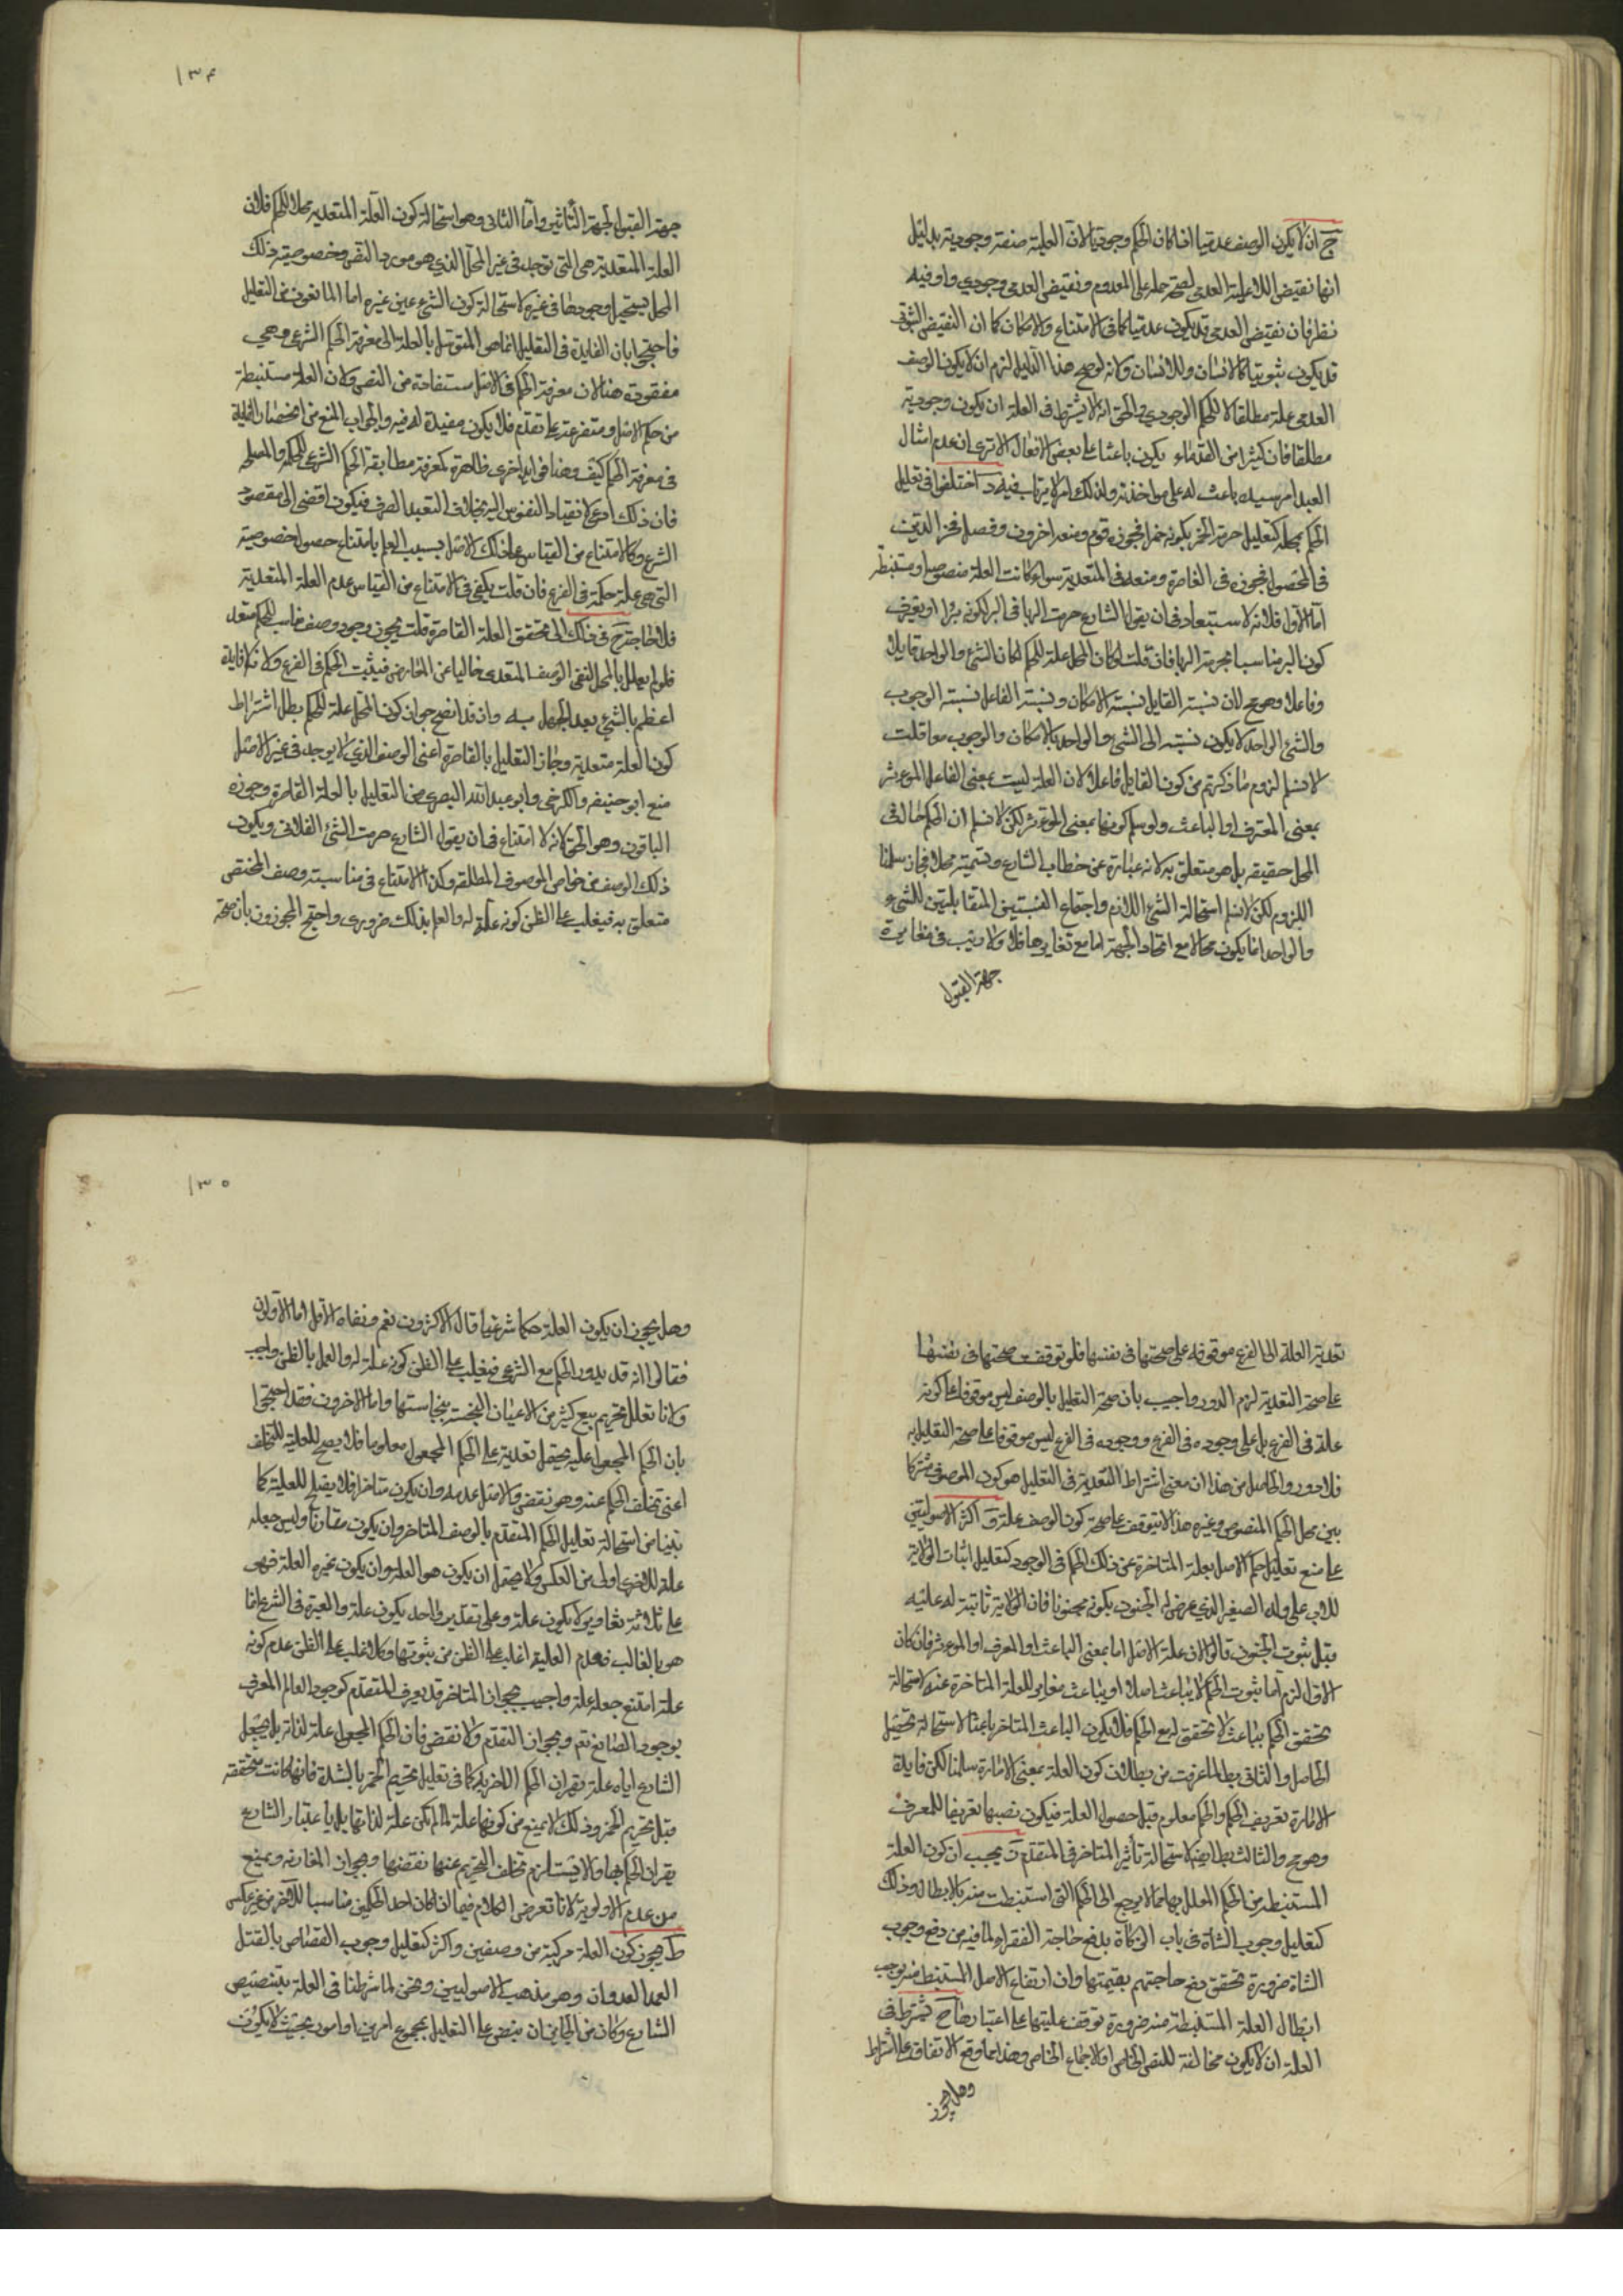 ج ان لا يكون الوصف عدميا اذا كان الحكم وجوديا لان العلية صفة وجودية بدليل
انها نقيض اللاعلية العدمي لصحة حمله على المعدوم ونقيض العدمي وجودي واو فيه
نظر فان نقيض العدمي قد يكون عدميا كما في الامتناع والامكان كما ان النقيض الثبوتي
قد يكون ثبوتيا كالانسان واللاانسان ولانه لو صح هذا الدليل لزم ان لا يكون الوصف
العدمي علة مطلقا لا للحكم الوجودي والحق انه لا يشترط في العلة ان يكون وجودية
مطلقا فان كثيرا من القدماء يكون باعثا على بعض الافعال الا ترى ان عدم امتثال
العبد امر سيده باعث له على مواخذته ولذلك امر لا يرتاب فيه د اختلفوا في تعليل
الحكم بمحله كتعليل حرمة الخمر بكونه خمرا فجوزه قوم ومنعه اخرون وفصل فخر الدين
في المحصول فجوزه في القاصرة ومنعه في المتعدية سواء كانت العلة منصوصة او مستنبطة
اما الاول فلانه لا استبعاد في ان يقول الشارع حرمت الربا في البر لكونه برا او يعرف
كون البر مناسبا لحرمة الربا فان قلت لو كان المحل علة للحكم لكان الشيء الواحد قابلا
وفاعلا وهو مح لان نسبة القابل نسبة الامكان ونسبة الفاعل نسبة الوجوب
والشئ الواحد لا يكون نسبته الى الشئ الواحد بالامكان والوجوب معا قلت
لا نسلم لزوم ما ذكرتم من كون القابل فاعلا لان العلة ليست بمعنى الفاعل الموثر
بمعنى المعرف او الباعث ولو سلم كونها بمعنى الموثر لكن لا نسلم ان الحكم حال في
المحل حقيقة بل هو متعلق به لانه عبارة عن خطاب الشارع وتسميته محلا مجاز سلمنا
اللزوم لكن لا نسلم استحالة الشئ اللازم واجتماع النسبتين المتقابلتين للشيء
الواحد انما يكون محالا مع اتحاد الجهة اما مع تغايرها فلا ولا ريب في مغايرة
جهة القبول
١٣٤
جهة القبول لجهة التأثير واما الثاني وهو استحالة كون العلة المتعدية محلا للحكم فلان
العلة المتعدية هي التي توجد في غير المحل الذي هو مورد النص وخصوصية ذلك
المحل يستحيل وجودها في غيره لاستحالة كون الشئ عين غيره اما المانعون من التعليل
فاحتجوا بان الفايدة في التعليل انما هي التوسل بالعلة الى معرفة الحكم الشرعي وهي
مفقودة هنا لان معرفة الحكم في الاصل مستفادة من النص ولان العلة مستنبطة
من حكم الاصل ومتفرعة على تقدم فلا يكون مفيدة له فيه والجواب المنع من انحصار الفايدة
في معرفة الحكم كيف وهنا فوايد اخرى ظاهرة كمعرفة مطابقة الحكم الشرعي للحكمة والمصلحة
فان ذلك ادعى لانقياد النفوس اليه بخلاف التعبد الصرف فيكون افضى الى مقصود
الشرع وكالامتناع من القياس على ذلك الاصل بسبب العلم بامتناع حصول خصوصية
التي هي علة حكمه في الفرع فان قلت يكفي في الامتناع من القياس عدم العلة المتعدية
فلا حاجة ح في ذلك الى تحقق العلة القاصرة قلت يجوز وجود وصف مناسب للحكم متعد
فلو لم يعلل بالمحل لبقي الوصف المتعدي خاليا عن المعارض فيثبت الحكم في الفرع ولا فايدة
اعظم بالشئ بعد الجهل به واذ قد اتضح جواز كون المحل علة للحكم بطل اشتراط
كون العلة متعدية وجاز التعليل بالقاصرة اعني الوصف الذي لا يوجد في غير الاصل
منع ابو حنيفة والكرخي وابو عبد الله البصري من التعليل بالعلة القاصرة وجوزه
الباقون وهو الحق لانه لا امتناع في ان يقول الشارع حرمت الشئ الفلاني ويكون
ذلك الوصف من خواص الموصوف المطلقة وكذا لا امتناع في مناسبة وصف المختص
متعلق به فيغلب على الظن كونه علة له والعلم بذلك ضروري واحتج المجوزون بان صحة
تعدية العلة الى الفرع موقوفة على صحتها في نفسها فلو توقفت صحتها في نفسها
على صحة التعدية لزم الدور واجيب بان صحة التعليل بالوصف ليس موقوفا على كونه
علة في الفرع بل على وجوده في الفرع ووجوده في الفرع ليس موقوفا على صحة التعليل به
فلا دور والحاصل من هذا ان معنى اشتراط التعدية في التعليل هو كون الموصوف مشتركا
بين محل الحكم المنصوص وغيره هذا لا يتوقف على صحة كون الوصف علة و اكثر الاصوليين
على منع تعليل حكم الاصل بعلة المتاخرة عن ذلك الحكم في الوجود كتعليل اثبات الولاية
للاب على ولده الصغير الذي عرض له الجنون بكونه مجنونا فان الولاية ثابتة له عليه
قبل ثبوت الجنون قالوا لان علة الاصل اما بمعنى الباعث او المعرف او الموثر فان كان
الاول لزم اما ثبوت الحكم لا بباعث اصلا او بباعث مغاير للعلة المتاخرة عنه لاستحالة
تحقق الحكم بباعث لا تحقق له مع الحكم فلا يكون الباعث المتاخر باعثا لاستحالة تحصيل
الحاصل والثاني بط لما عرفت من بطلان كون العلة بمعنى الامارة سلمنا لكن فايدة
الامارة تعريف الحكم والحكم معلوم قبل حصول العلة فيكون نصبها تعريفا للمعرف
وهو مح والثالث بط ايضا لاستحالة تأثير المتاخر في المتقدم ز يجب ان كون العلة
المستنبطة من الحكم المعلل بها مما لا يرجع الى الحكم التي استنبطت منه بالابطال وذلك
كتعليل وجوب الشاة في باب الزكاة بدفع حاجة الفقراء لما فيه من دفع وجوب
الشاة ضرورة تحقق دفع حاجتهم بقيمتها وان ارتفاع الاصل المستنبط منه يوجب
ابطال العلة المستنبطة منه ضرورة توقف عليتها على اعتباره بها ح يشترط في
العلة ان لا يكون مخالفة للنص الخاص او الاجماع الخاص وهذا مما وقع الاتفاق على اشتراط
وهل يجوز
١٣٥
وهل يجوز ان يكون العلة حكما شرعيا قال الاكثرون نعم ونفاه الاقل اما الاولون
فقالوا انه قد يدور الحكم مع الشرعي فيغلب على الظن كونه علة له والعمل بالظن واجب
ولانا نعلل تحريم بيع كثير من الاعيان النجسة بنجاستها واما الاخرون فقد احتجوا
بان الحكم المجعول علة يحتمل تقدمه على الحكم المجعول معلولا فلا يصح للعلية للتخلف
اعني تخلف الحكم عنه وهو نقض والاصل عدمه وان يكون متاخرا فلا يصلح للعلية كما
بينا من استحالة تعليل الحكم المتقدم بالوصف المتاخر وان يكون مقارنا وليس جعله
علة للاخر اولى من العكس ولا يحتمل ان يكون هو العلة وان يكون غيره العلة فهي
على ثلاثة تقادير لا يكون علة وعلى تقدير واحد يكون علة والعبرة في الشرع انما
هو بالغالب فعدم العلية اغلب على الظن من ثبوتها وكلما غلب على الظن عدم كونه
علة امتنع جعله علة واجيب بجواز المتاخر قد يعرف المتقدم كوجود العالم المعرف
بوجود الصانع نعم وبجواز التقدم ولا نقض فان الحكم المجعول علة لذاته بل بجعل
الشارع اياه علة بقران الحكم الاخر به كما في تعليل تحريم الخمر بالشدة فانها كانت متحققة
قبل تحريم الخمر وذلك لا يمنع من كونها علة لما لم تكن علة لذاتها بل باعتبار الشارع
بقران الحكم بها ولا يستلزم تخلف التحريم عنها نقضها وبجواز المقارنة ويمنع
من عدم الاولوية لانا نعرض الكلام فيما اذا كان احد الحكمين مناسبا للاخر من غير عكس
ط يجوز كون العلة مركبة من وصفين واكثر كتعليل وجوب القصاص بالقتل
العمد العدوان وهو مذهب الاصوليين ونحن لما شرطنا في العلة بتنصيص
الشارع وكان من الجايز ان ينص على التعليل بمجموع امرين او امور بحيث لا يكون